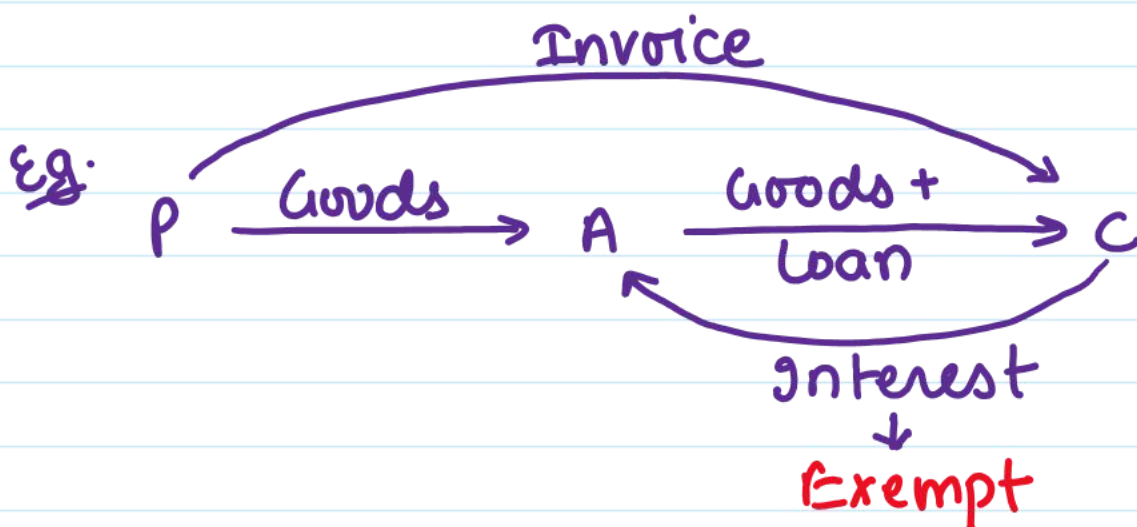 Invoice
Eg.
P Goods A Goods + C
Loan
Interest
Exempt